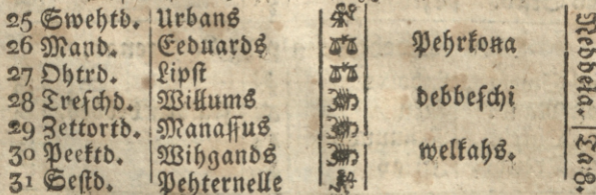 25 Swehtd. Urbans
26 Mand. Eeduards Pehrkona
27 Ohtrd. Lipst
28 Treschd. Willums debbeschi
29 Zettortd. Manassus
30 Peektd. Wihgands welkahs.
31 Sestd. Pehternelle